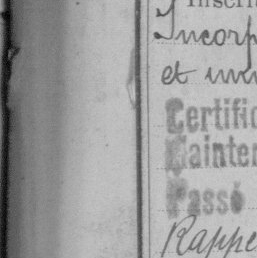 Inscrit
Incorp
et
Certific
Mainten
Passé
Rappe